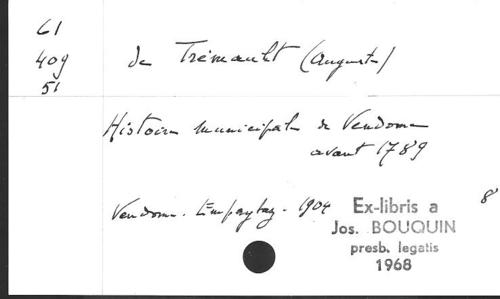 61
409
51
de Trémault (Auguste)
Histoire municipale de Vendome
avant 1789
Vendome. Empaytaz - 1904
8°
Ex-libris a
Jos. BOUQUIN
presb. legatis
1968